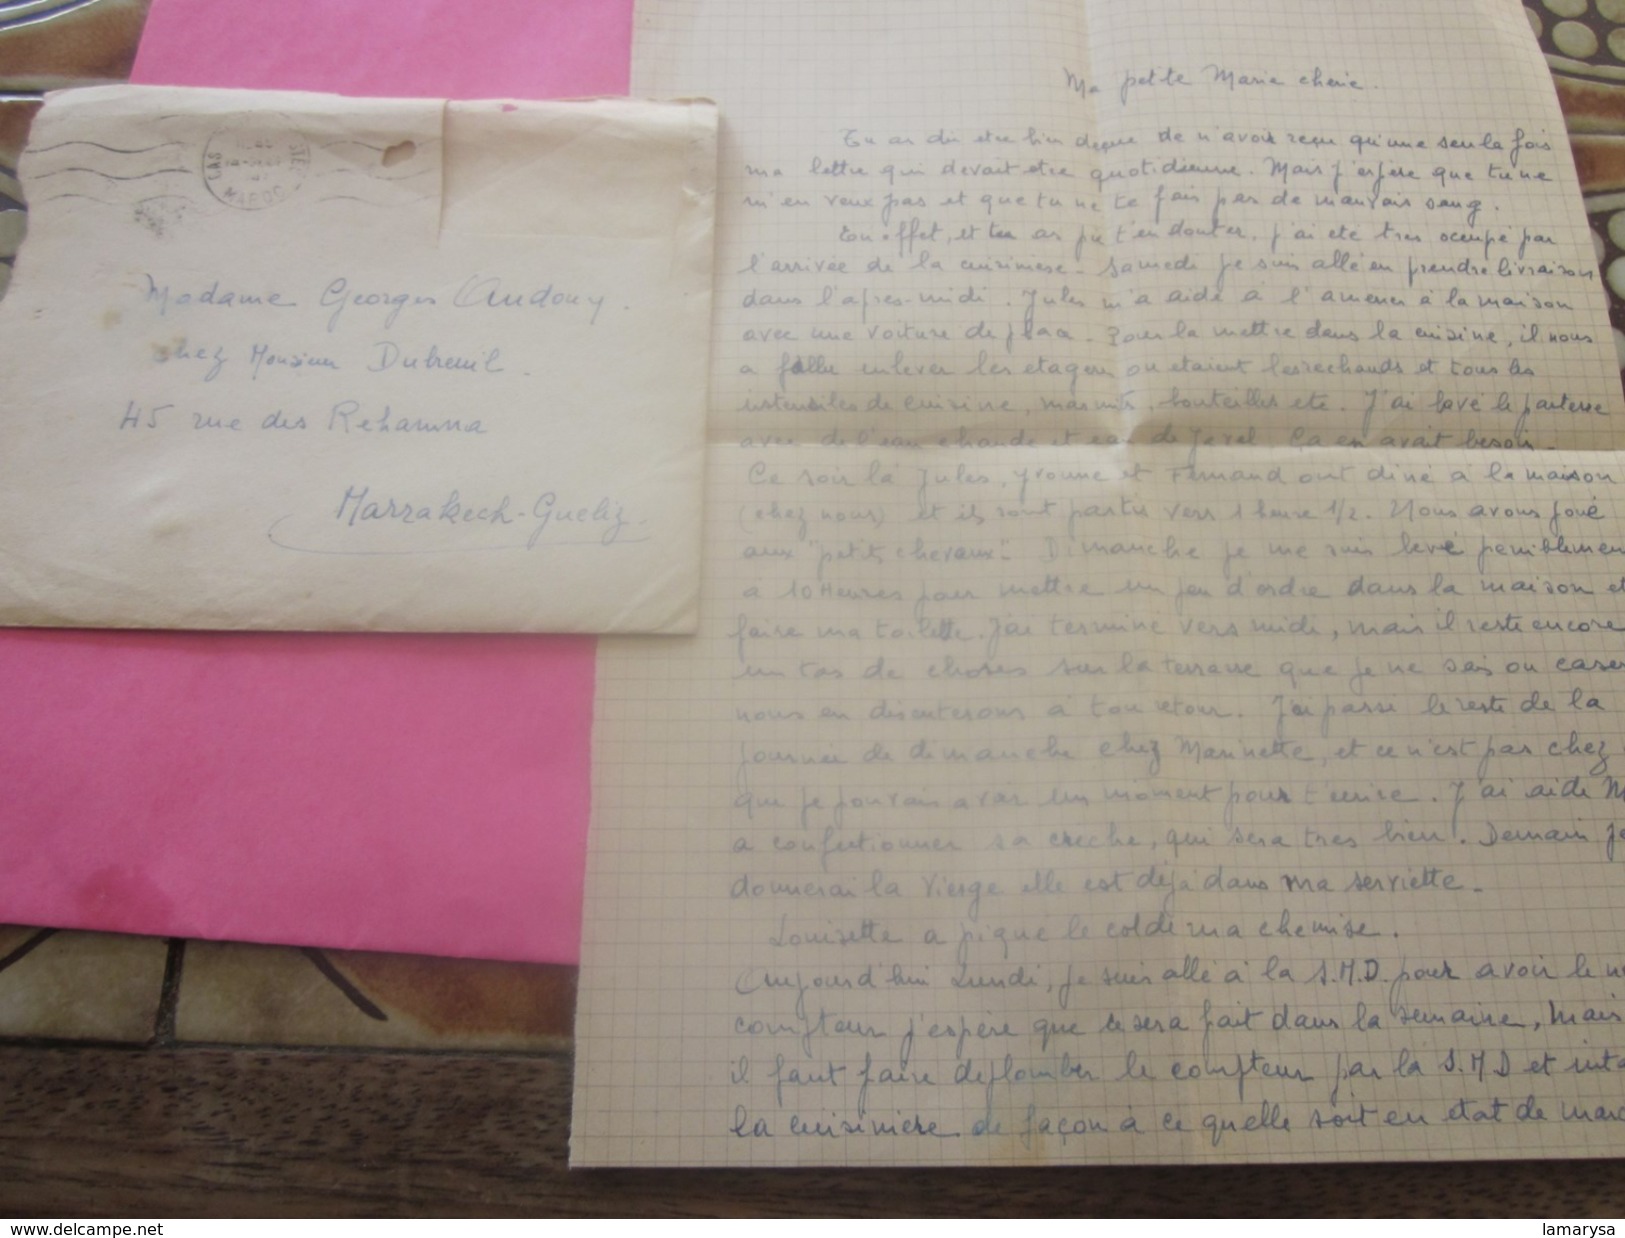 MAROC
Madame Georges Audouy.
chez Monsieur Dubreuil.
45 rue des Rehamna
Marrakech-Gueliz.
Ma petite Marie cherie.
Tu as du etre bien deçue de n'avoir reçu qu'une seule fois
ma lettre qui devait etre quotidienne. Mais j'espère que tu ne
m'en veux pas et que tu ne te fais pas de mauvais sang.
En effet, et tu as pu t'en douter, j'ai eté tres occupé par
l'arrivée de la cuisiniere. Samedi je suis allé en prendre livraison
dans l'apres-midi. Jules m'a aidé à l'amener à la maison
avec une voiture de place. Pour la mettre dans la cuisine, il nous
a fallu enlever les etageres ou etaient les rechauds et tous les
ustensiles de cuisine, marmites, bouteilles etc. J'ai lavé le parterre
avec de l'eau chaude et eau de Javel. Ça en avait besoin.
Ce soir là Jules, Yvonne et Fernand ont diné à la maison
(chez nous) et ils sont partis vers 1 heure 1/2. Nous avons joué
aux "petits chevaux". Dimanche je me suis levé peniblement
a 10 Heures pour mettre un peu d'ordre dans la maison et
faire ma toilette. J'ai terminé vers midi, mais il reste encore
un tas de choses sur la terrasse que je ne sais ou caser
nous en discuterons à ton retour. J'ai passé le reste de la
journée de dimanche chez Marinette, et ce n'est pas chez
que je pouvais avoir un moment pour t'ecrire. J'ai aidé
a confectionner sa creche, qui sera tres bien. Demain je
donnerai la Vierge elle est déjà dans ma serviette.
Louisette a piqué le col de ma chemise.
Aujourd'hui Lundi, je suis allé à la S.M.D. pour avoir le
compteur j'espère que ce sera fait dans la semaine, mais
il faut faire deplomber le compteur par la S.M D et
la cuisiniere de façon à ce quelle soit en etat de
www.delcampe.net
lamarysa